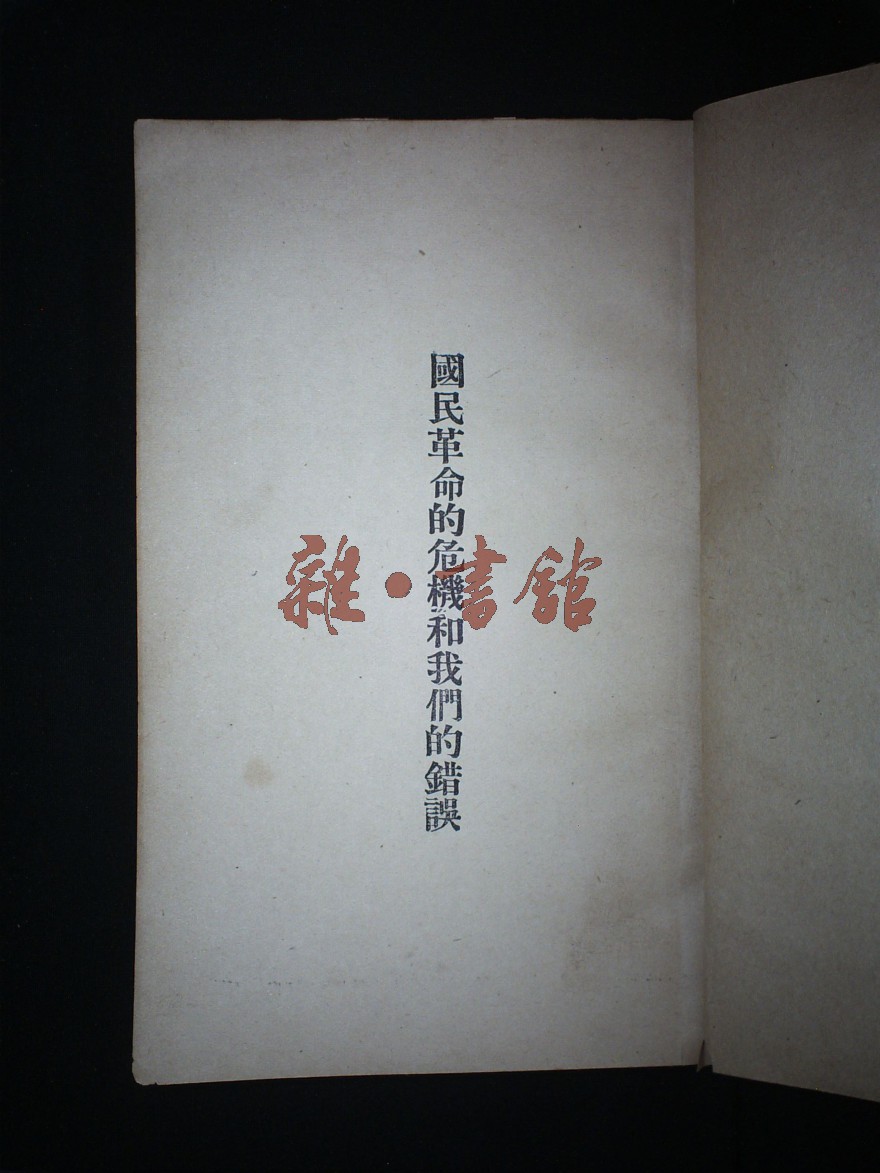 國民革命的危機和我們的錯誤
雜·書館